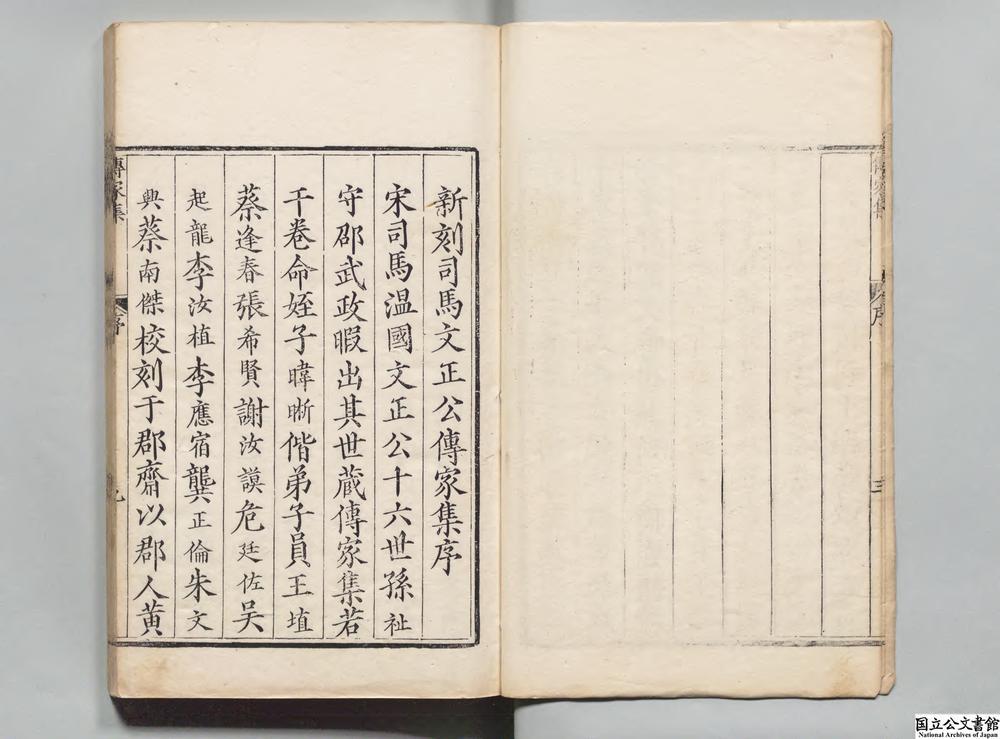 新刻司馬文正公傳家集序
宋司馬溫國文正公十六世孫祉
守邵武政暇出其世蔵傳家集若
干卷命姪子暐晣偕弟子員王埴
蔡逢春張希賢謝汝謨危廷佐吴
起龍李汝植李應宿龔正倫朱文
興蔡南傑校刻于郡齋以郡人黄
傳家集
序
傳家集
序
三
国立公文書館
National Archives of Japan